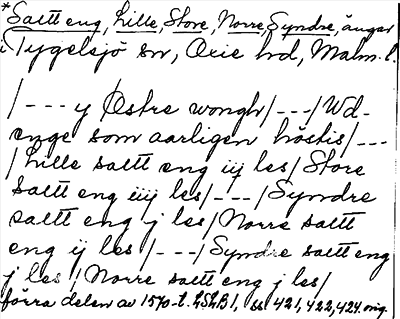 *Saltt eng, Lille, Store, Norre, Syndre, ängar
i Tygelsjö sn, Oxie hd, Malm. l.
/ - - - y Østre wongh / - - - / Wd-
enge som aarligen höstis / - - -
/ Lille saltt eng iij les / Store
saltt eng iiij les / - - - / Syndre
saltt eng j les / Norre saltt
eng ij les / - - - / Syndre saltt eng
j les / Norre saltt eng j les /
förra delen av 1570-t. LSLB 1, ss 421, 422, 424. orig.